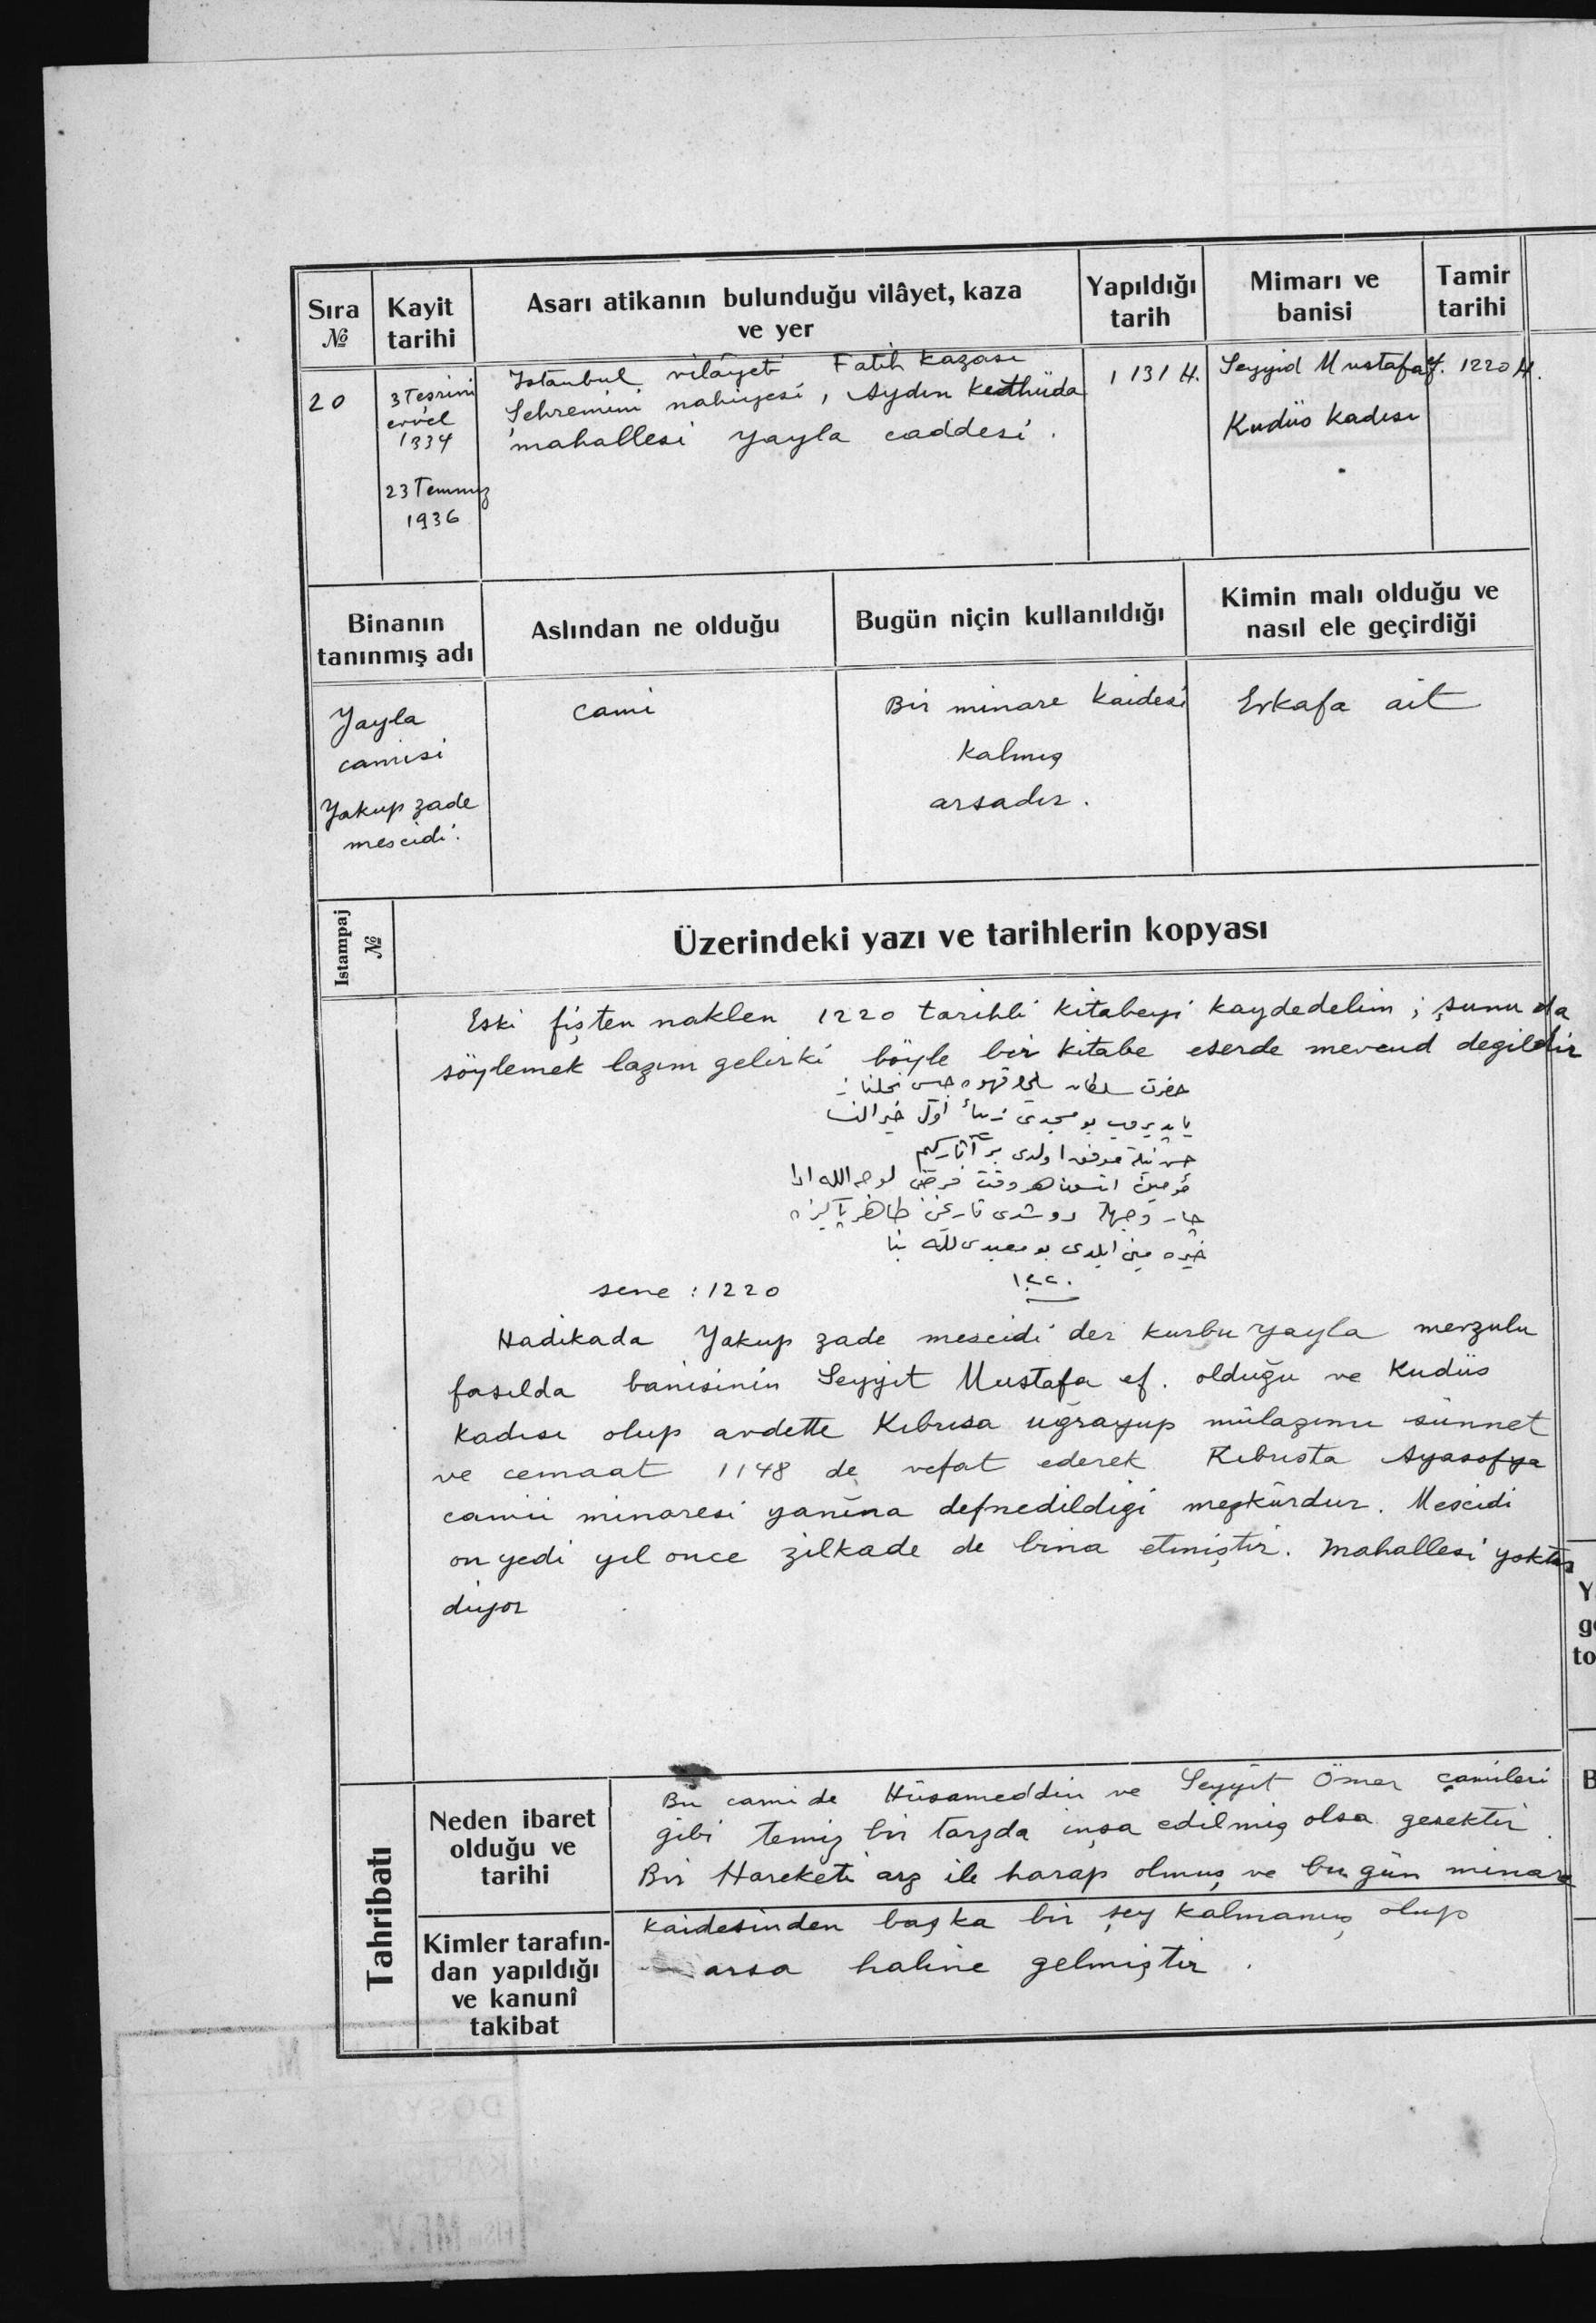 Sıra №
Kayit tarihi
Asarı atikanın bulunduğu vilâyet, kaza ve yer
Yapıldığı tarih
Mimarı ve banisi
Tamir tarihi
20
3 Teşrini
evvel
1334
23 Temmuz
1936
Istanbul vilâyeti Fatih kazası
Şehremini nahiyesi, Aydın Kethüda
mahallesi yayla caddesi.
1131 H.
Seyyid Mustafa ef.
Kudüs kadısı
1220 H.
Binanın tanınmış adı
Aslından ne olduğu
Bugün niçin kullanıldığı
Kimin malı olduğu ve nasıl ele geçirdiği
Yayla
camisi
Yakup zade
mescidi.
Cami
Bir minare kaidesi
kalmış
arsadır.
Evkafa ait
Istampaj №
Üzerindeki yazı ve tarihlerin kopyası
Eski fişten naklen 1220 tarihli kitabeyi kaydedelim ; şunu da
söylemek lazım gelirki böyle bir kitabe eserde mevcud degildir
حضرت سلطان
بو مسجدی اول خیر النسا
موفق اولدی بر
هر وقت لوجه الله ادا
ایلدی بو معبدی لله بنا
sene : 1220
١٢٢٠
Hadikada Yakup zade mescidi der kurbu yayla mevzulu
fasılda banisinin Seyyit Mustafa ef. olduğu ve Kudüs
kadısı olup avdette Kıbrısa uğrayup mülazımı sünnet
ve cemaat 1148 de vefat ederek Kıbrısta Ayasofya
camii minaresi yanına defnedildigi mezkûrdur. Mescidi
on yedi yıl once zilkade de bina etmiştir. Mahallesi yoktur
diyor
Tahribatı
Neden ibaret olduğu ve tarihi
Bu cami de Hüsameddin ve Seyyit Ömer camileri
gibi temiz bir tarzda inşa edilmiş olsa gerektir.
Bir Hareketi arz ile harap olmuş ve bu gün minare
Kimler tarafın-
dan yapıldığı
ve kanunî
takibat
kaidesinden başka bir şey kalmamış olup
arsa haline gelmiştir.